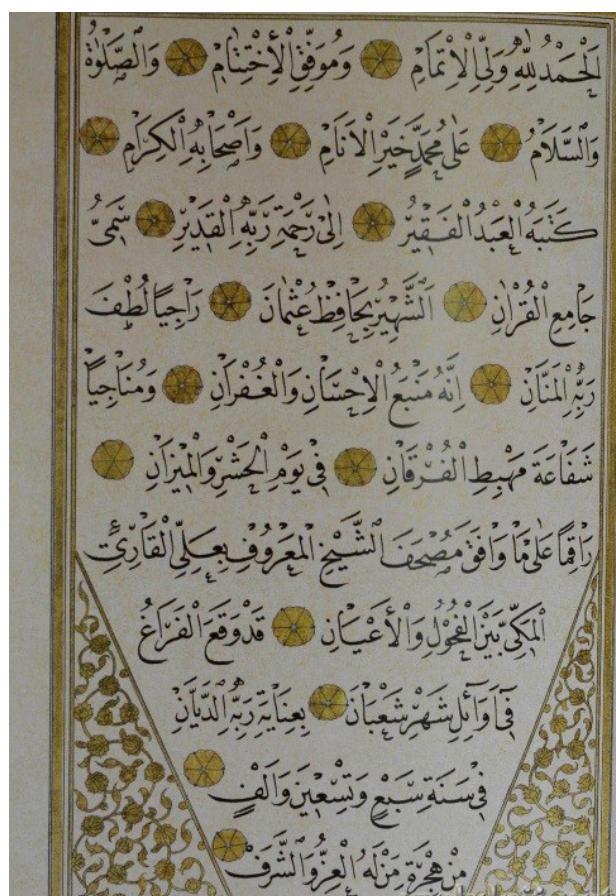 اَلْحَمْدُ لِلّٰهِ وَلِيِّ الْاِتْمَامِ وَمُوَفِّقِ الْاِخْتِتَامِ وَالصَّلٰوةُ
وَالسَّلَامُ عَلٰى مُحَمَّدٍ خَيْرِ الْاَنَامِ وَاَصْحَابِهِ الْكِرَامِ
كَتَبَهُ الْعَبْدُ الْفَقِيْرُ اِلٰى رَحْمَةِ رَبِّهِ الْقَدِيْرِ سَمِىُّ
جَامِعِ الْقُرْاٰنِ اَلشَّهِيْرُ بِحَافِظْ عُثْمَانَ رَاجِيًا لُطْفَ
رَبِّهِ الْمَنَّانِ اِنَّهُ مَنْبَعُ الْاِحْسَانِ وَالْغُفْرَانِ وَمُنَاجِيًا
شَفَاعَةَ مَهْبِطِ الْفُرْقَانِ فِىْ يَوْمِ الْحَشْرِ وَالْمِيْزَانِ
رَاقِمًا عَلٰى مَا وَافَقَ مُصْحَفَ الشَّيْخِ الْمَعْرُوْفِ بِعَلِيِّ الْقَارِئِ
الْمَكِّىِّ بَيْنَ الْفُحُوْلِ وَالْاَعْيَانِ قَدْ وَقَعَ الْفَرَاغُ
فِىْ اَوَائِلِ شَهْرِ شَعْبَانَ بِعِنَايَةِ رَبِّهِ الدَّيَّانِ
فِىْ سَنَةِ سَبْعٍ وَتِسْعِيْنَ وَاَلْفٍ
مِنْ هِجْرَةِ مَنْ لَهُ الْعِزُّ وَالشَّرَفُ